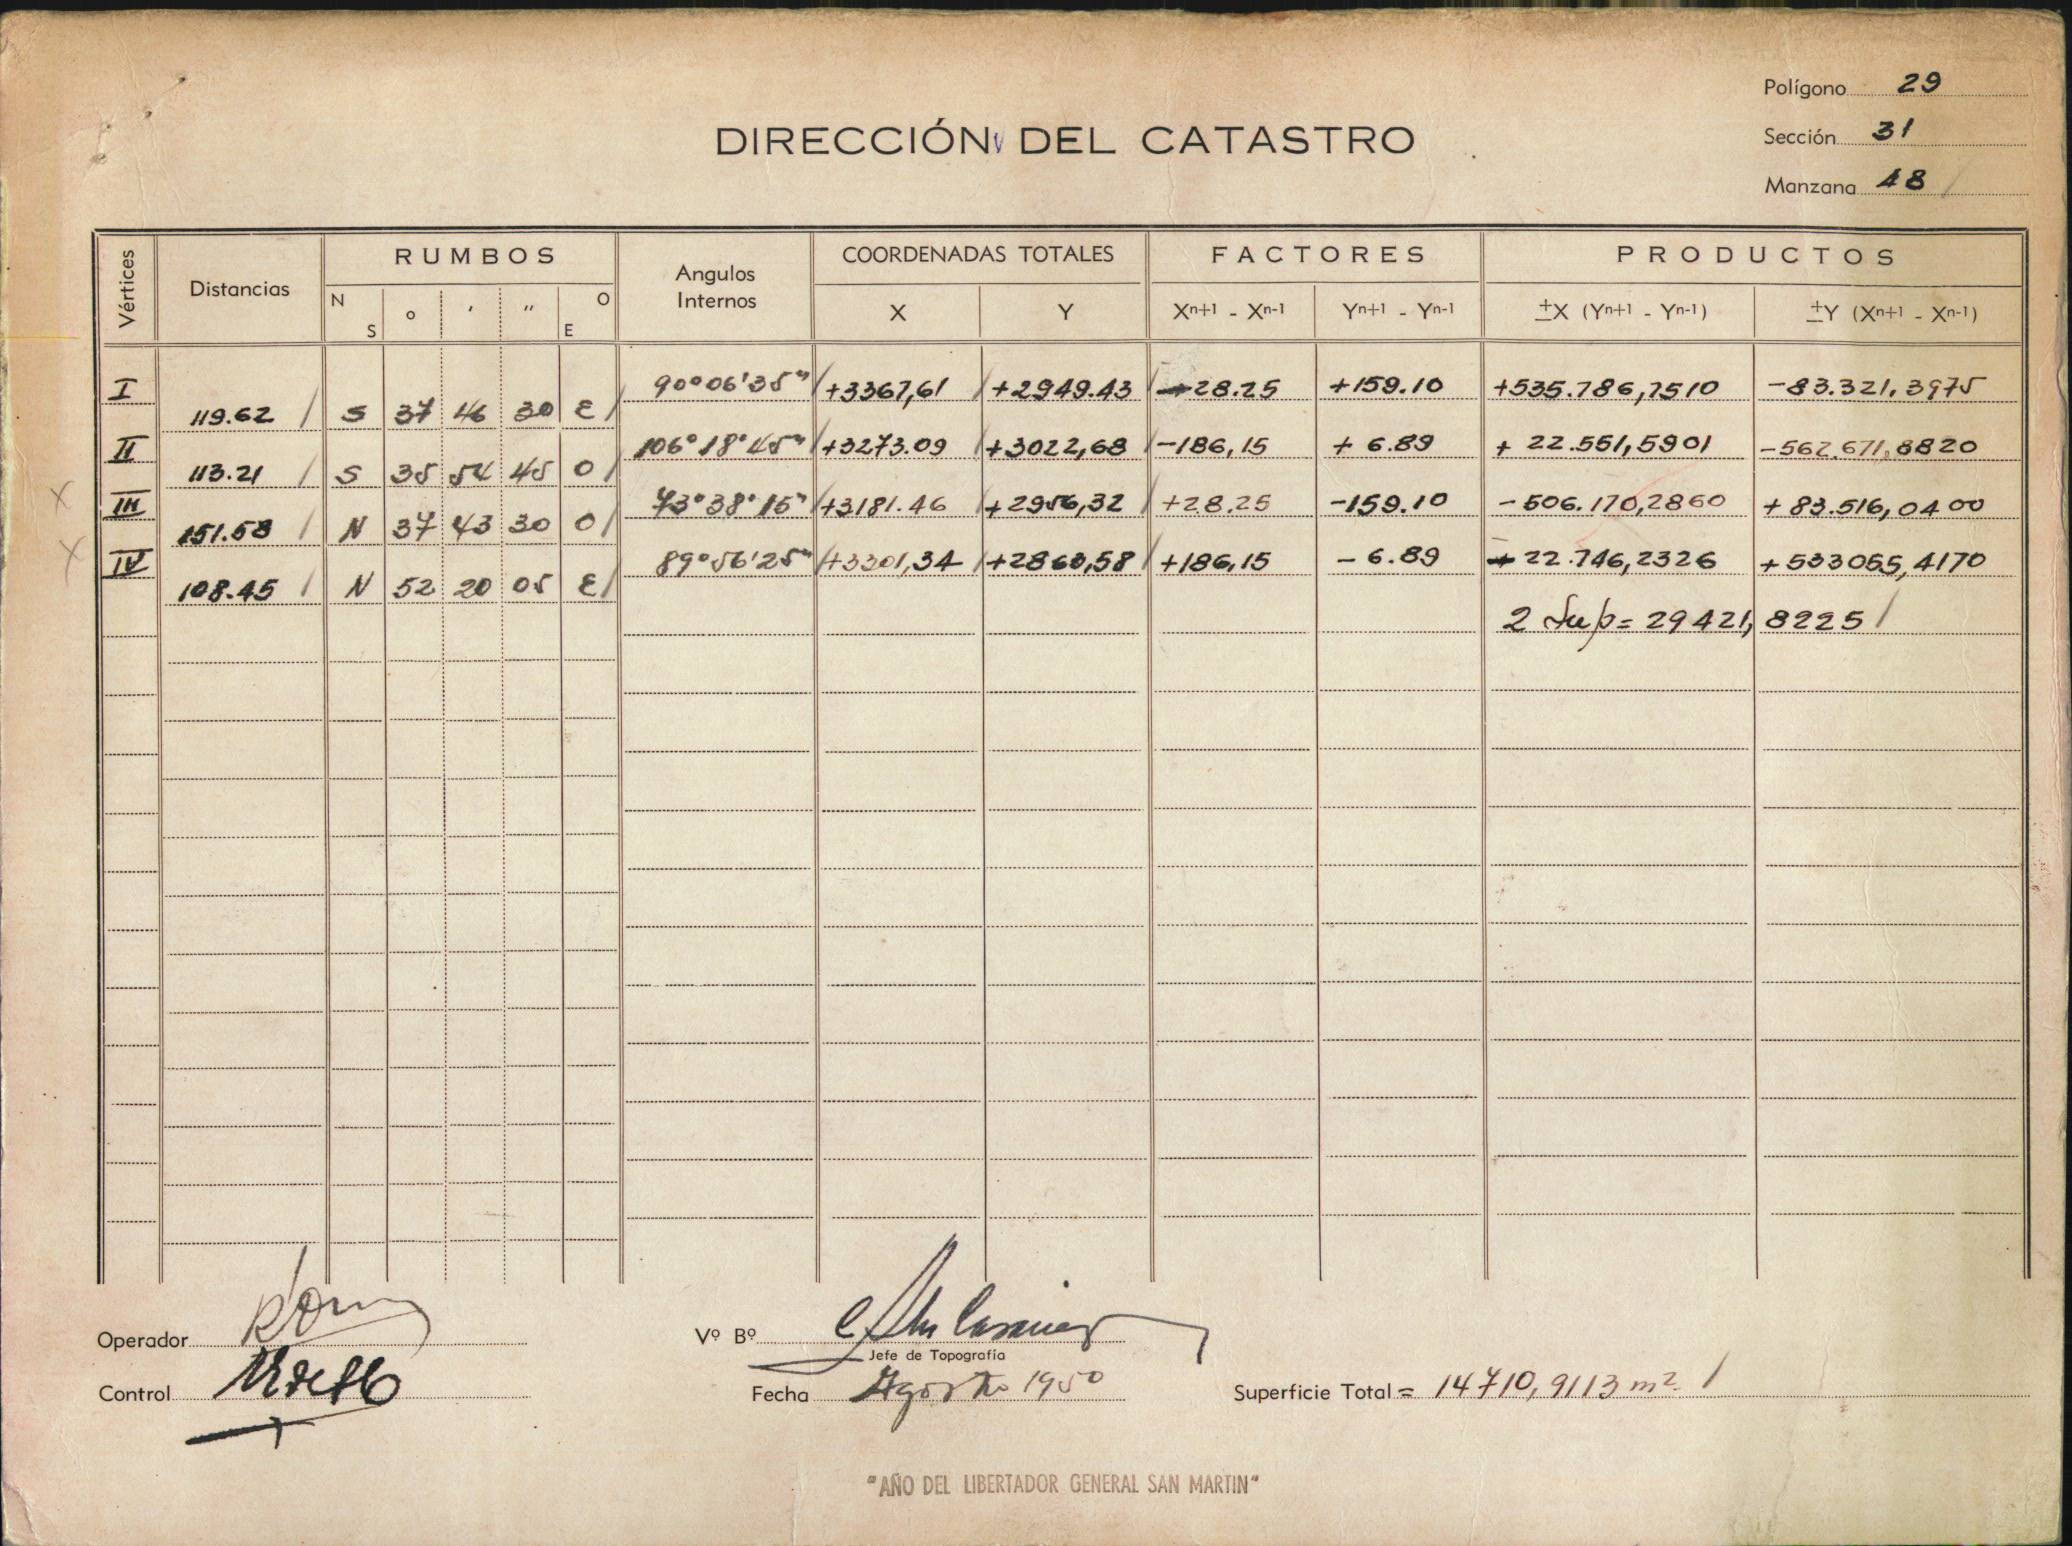 Polígono 29
DIRECCIÓN DEL CATASTRO
Sección 31
Manzana 48
Vértices Distancias RUMBOS Angulos Internos COORDENADAS TOTALES FACTORES PRODUCTOS
N S o ' " O E X Y Xn+1 - Xn-1 Yn+1 - Yn-1 ±X (Yn+1 - Yn-1) ±Y (Xn+1 - Xn-1)
I 90°06'35" +3367,61 +2949.43 -28.25 +159.10 +535.786,7510 -83.321,3975
119.62 S 37 46 30 E
II 106°18'45" +3273.09 +3022,68 -186,15 + 6.89 + 22.551,5901 -562.671,8820
113.21 S 35 54 45 O
III 73°38'15" +3181.46 +2956,32 +28.25 -159.10 -506.170,2860 +83.516,0400
151.58 N 37 43 30 O
IV 89°56'25" +3301,34 +2863,58 +186,15 - 6.89 - 22.746,2326 +533055,4170
108.45 N 52 20 05 E
2 Sup = 29421,8225
Operador
Vº Bº
Jefe de Topografía
Control
Fecha Agosto 1950
Superficie Total = 14710,9113 m²
"AÑO DEL LIBERTADOR GENERAL SAN MARTIN"